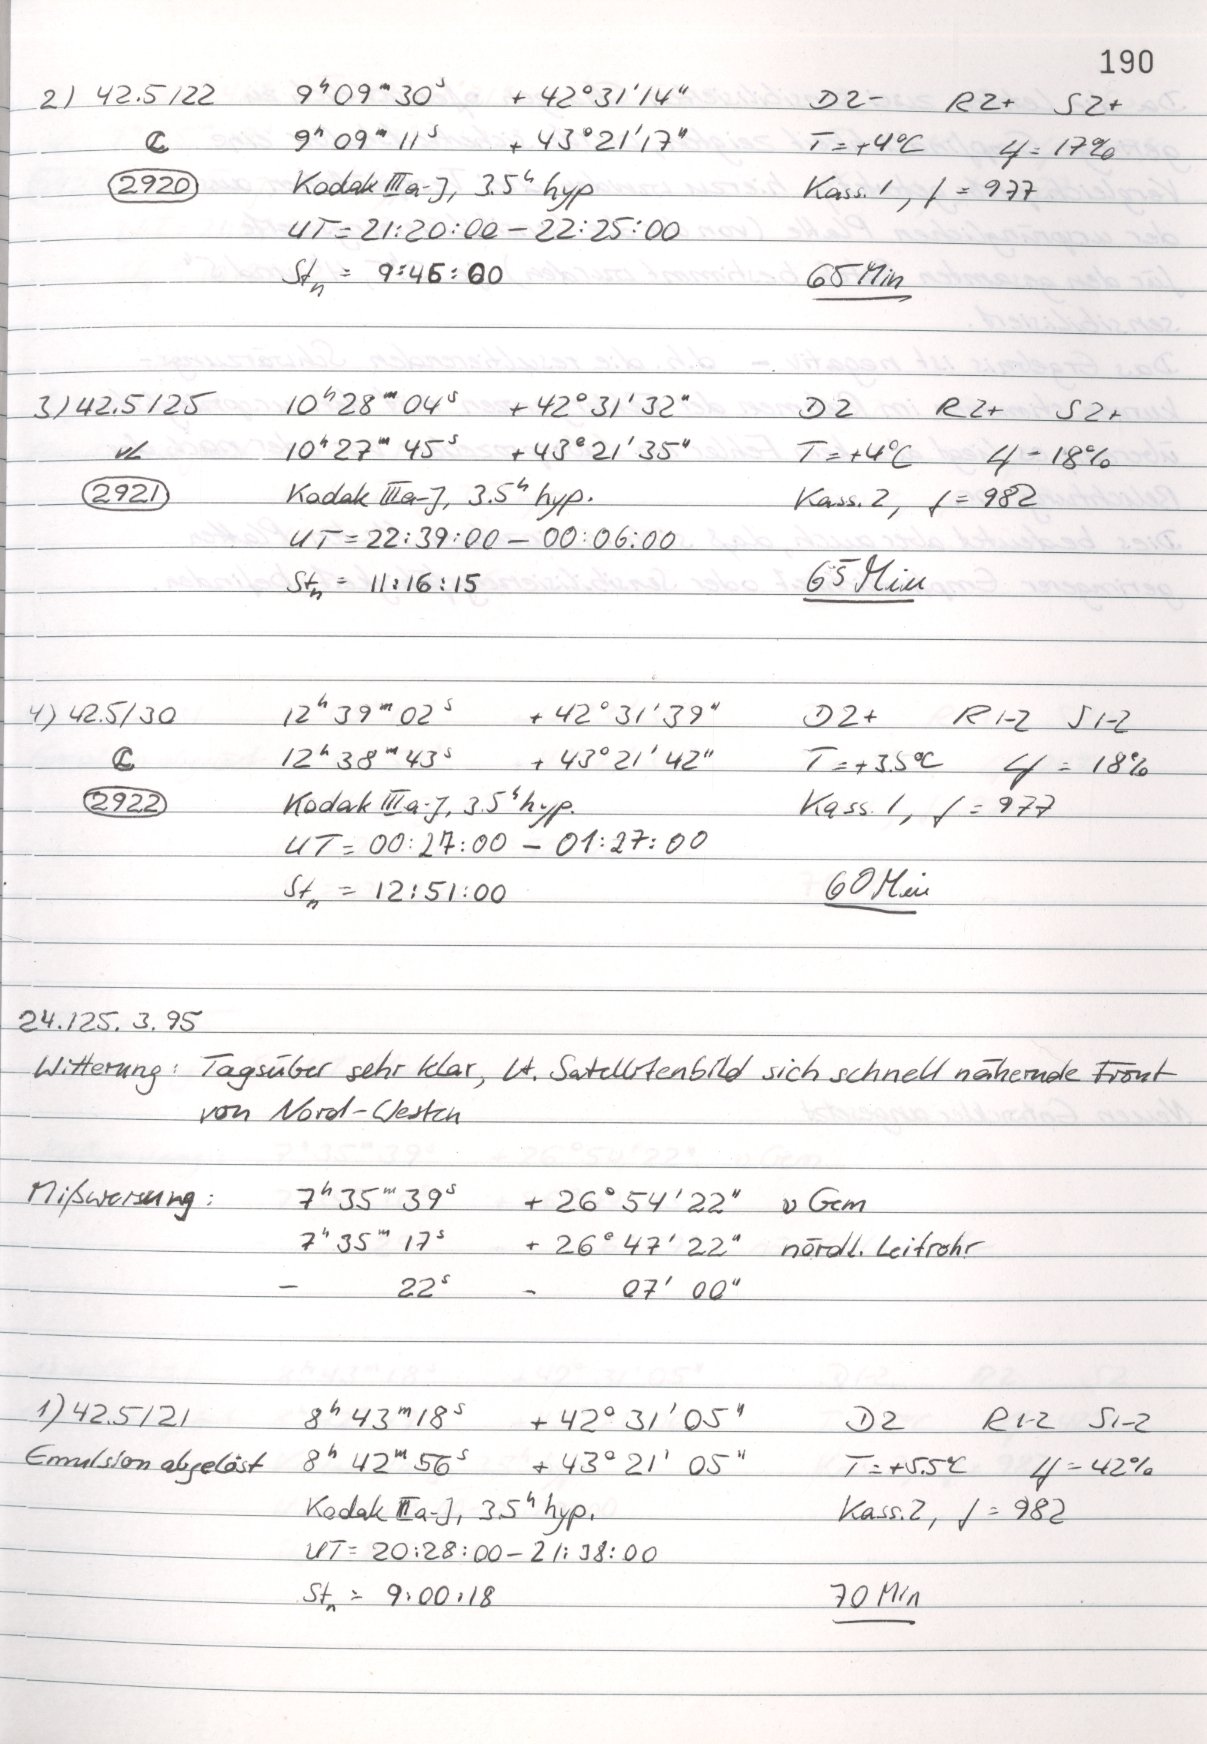 190
2) 42.5/22 9ʰ09ᵐ30ˢ +42°31'14" D2- R2+ S2+
C 9ʰ09ᵐ11ˢ +43°21'17" T=+4°C φ=17%
2920 Kodak IIIa-J, 3.5ʰ hyp Kass. 1, f=977
UT=21:20:00-22:25:00
Stₙ = 9:46:00 65 Min
3) 42.5/25 10ʰ28ᵐ04ˢ +42°31'32" D2 R2+ S2+
10ʰ27ᵐ45ˢ +43°21'35" T=+4°C φ=18%
2921 Kodak IIIa-J, 3.5ʰ hyp. Kass. 2, f=982
UT=22:39:00-00:06:00
Stₙ = 11:16:15 65 Min
4) 42.5/30 12ʰ39ᵐ02ˢ +42°31'39" D2+ R1-2 S1-2
C 12ʰ38ᵐ43ˢ +43°21'42" T=+3.5°C φ=18%
2922 Kodak IIIa-J, 3.5ʰ hyp. Kass. 1, f=977
UT=00:27:00-01:27:00
Stₙ = 12:51:00 60 Min
24./25. 3. 95
Witterung: Tagsüber sehr klar, lt. Satellitenbild sich schnell nähernde Front
von Nord-Westen
Mißweisung: 7ʰ35ᵐ39ˢ +26°54'22" υ Gem
7ʰ35ᵐ17ˢ +26°47'22" nördl. Leitrohr
- 22ˢ - 07'00"
1) 42.5/21 8ʰ43ᵐ18ˢ +42°31'05" D2 R1-2 S1-2
Emulsion abgelöst 8ʰ42ᵐ56ˢ +43°21'05" T=+5.5°C φ=42%
Kodak IIIa-J, 3.5ʰ hyp. Kass. 2, f=982
UT=20:28:00-21:38:00
Stₙ = 9:00:18 70 Min